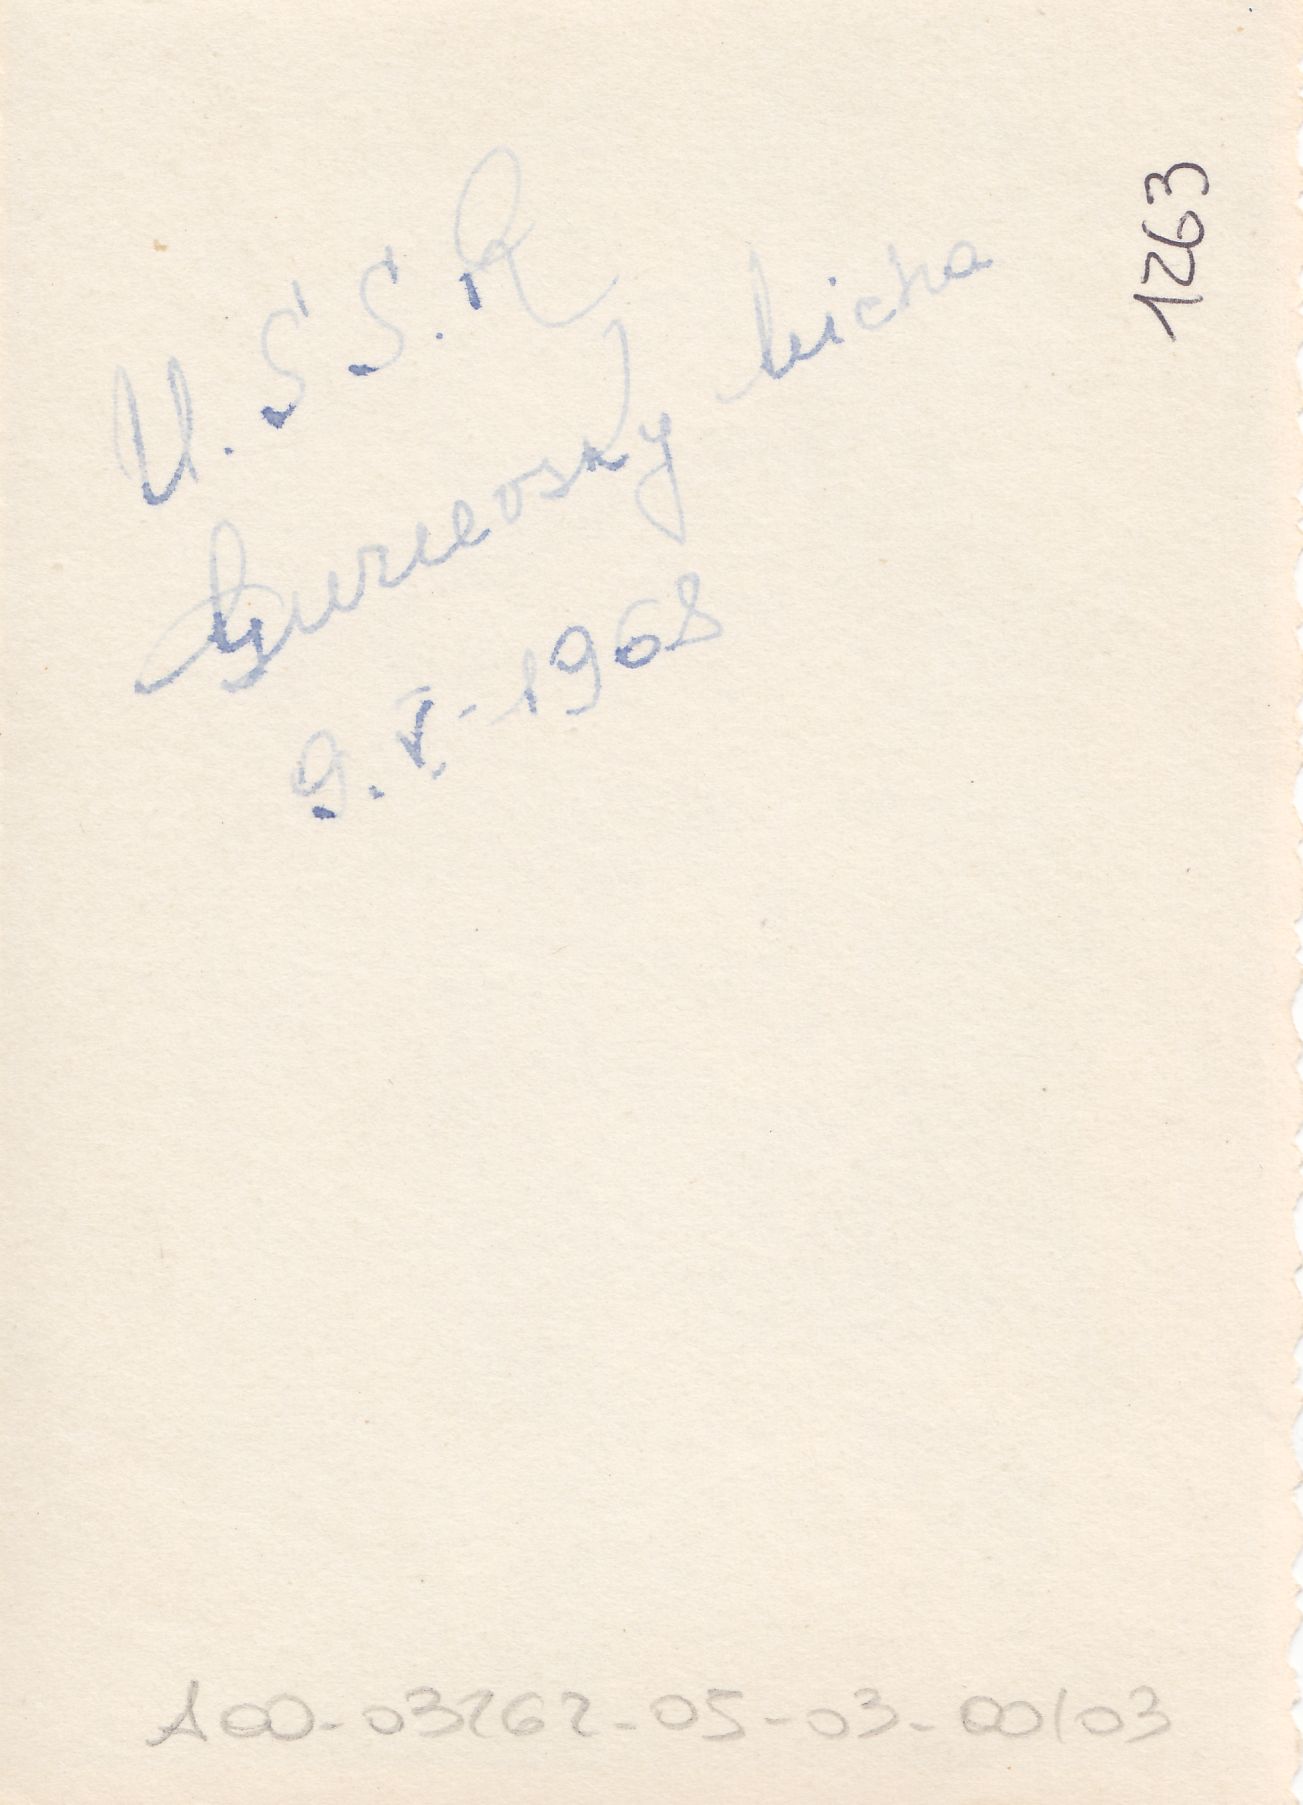 U.S.S.R
Gurievsky Micha
9.V-1968
1263
A00-03262-05-03-00103